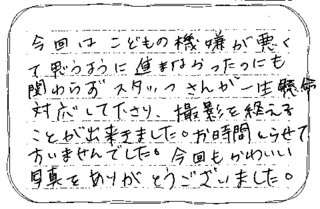 今回は こどもの機嫌が悪く
て思うように進まなかったのにも
関わらずスタッフさんが一生懸命
対応して下さり、撮影を終える
ことが出来ました。お時間とらせて
すいませんでした。今回もかわいい
写真をありがとうございました。